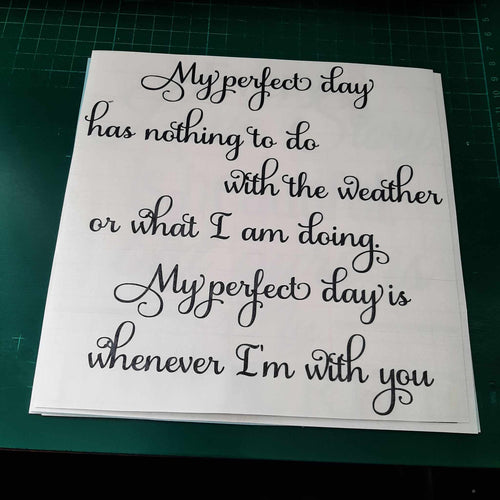 My perfect day
has nothing to do
with the weather
or what I am doing.
My perfect day is
whenever I'm with you